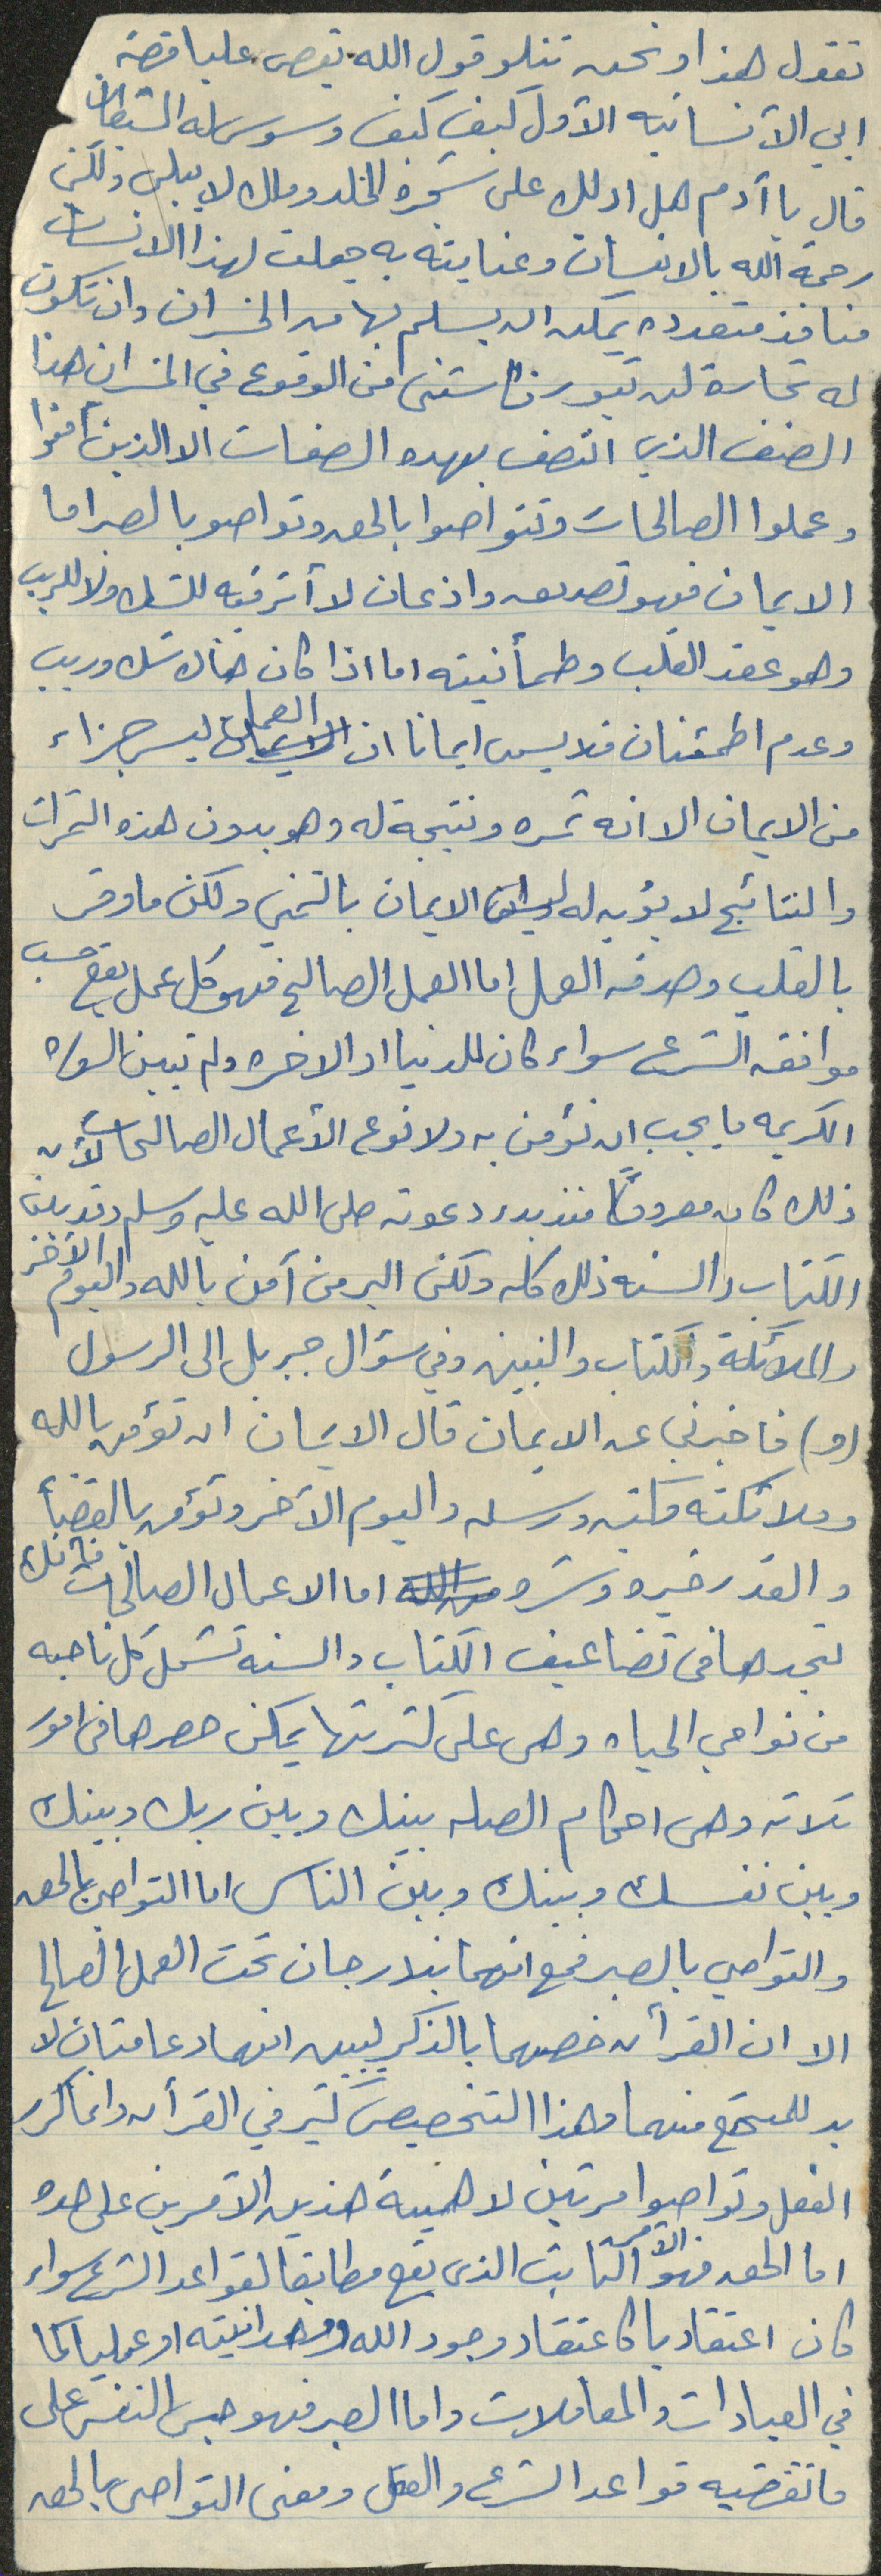 نقول هذا ونحن نتلو قول الله يقص علينا قصة
ابي الأنسانيه الأول كيف كيف وسوس له الشيطان
قال يا آدم هل ادلك على شجرة الخلد وملك لا يبلى ولكن
رحمة الله بالانسان وعنايته به جعلت لهذا الانسان
منافذ متعدده يمكنه ان يسلم بها من الخسران وان تكون
له تجارة لن تبور فاستثنى من الوقوع في الخسران هذا
الصنف الذي اتصف بهذه الصفات الا الذين آمنوا
وعملوا الصالحات وتواصوا بالحق وتواصو بالصبر اما
الايمان فهو تصديق واذعان لا أثر فيه للشك ولا للريب
وهو عقد القلب وطمأنينته اما اذا كان هناك شك وريب
وعدم اطمئنان فلا يسمى ايمانا ان العمل ليس جزاء
من الايمان الا انه ثمره ونتيجة له وهو بدون هذه الثمرات
والنتائج لا يؤبه له ليس الايمان بالتمني ولكن ما وقر
بالقلب وصدقه العمل اما العمل الصالح فهو كل عمل يقع حسب
موافقه الشرع سواء كان للدنيا او الاخره ولم تبين السوره
الكريمه ما يجب ان نؤمن به ولا نوع الأعمال الصالحات لأن
ذلك كان معروفاً منذ بدء دعوته صلى الله عليه وسلم وقد بين
الكتاب والسنه ذلك كله ولكن البر من آمن بالله واليوم الآخر
والملائكة والكتاب والنبين وفي سؤال جبريل الى الرسول
(ص) فاخبرني عن الايمان قال الايمان ان تؤمن بالله
وملائكته وكتبه ورسله واليوم الآخر وتؤمن بالقضأ
والقدر خيره وشره من الله اما الاعمال الصالحات فانك
تجدها في تضاعيف الكتاب والسنه تشمل كل ناحيه
من نواحي الحياه وهي على كثرتها يمكن حصرها في امور
ثلاثه وهي احكام الصله بينك وبين ربك وبينك
وبين نفسك وبينك وبين الناس اما التواصي بالحق
والتواصي بالصبر فمع انهما يندرجان تحت العمل الصالح
الا ان القرأن خصهما بالذكر ليبين انهما دعامتان لا
بد للمجتمع منهما وهذا التخصيص كثير في القرأن وانما كرر
الفعل وتواصوا مرتين لاهمية هذين الأمرين على حده
اما الحق فهو الأمر الثابت الذي يقع مطابقا لقواعد الشرع سواء
كان اعتقاديا كاعتقاد وجود الله ووحدانيته او عمليا كما
في العبادات والمعاملات واما الصبر فهو حبس النفس على
ما تقتضيه قواعد الشرع والعقل ومعنى التواصي بالحق